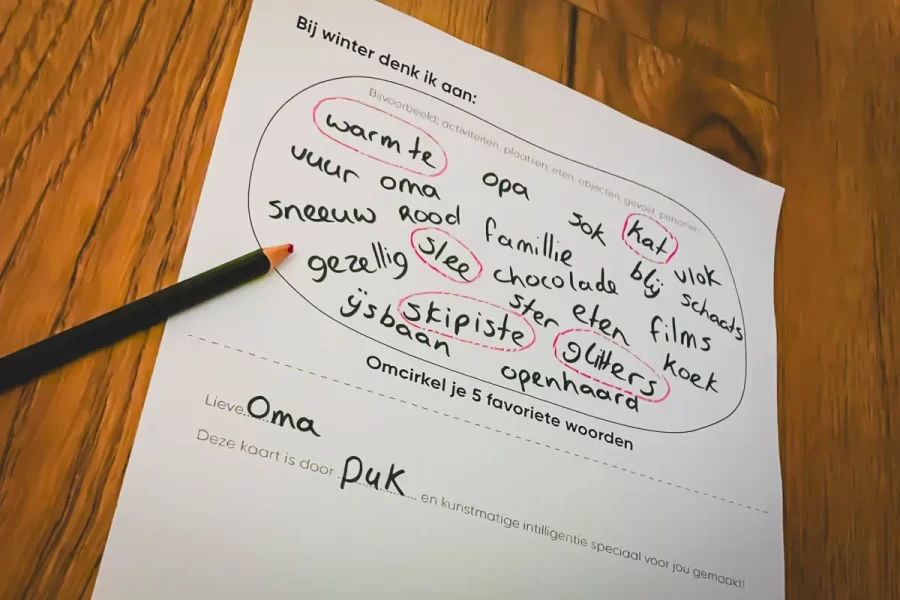 Bij winter denk ik aan:
Bijvoorbeeld; activiteiten, plaatsen, eten, objecten, gevoel, personen
warmte opa sok kat
vuur oma famillie blij vlok
sneeuw rood chocolade schaats
gezellig slee ster eten films
ijsbaan skipiste glitters koek
openhaard
Omcirkel je 5 favoriete woorden
Lieve Oma
Deze kaart is door Puk en kunstmatige intilligentie speciaal voor jou gemaakt!